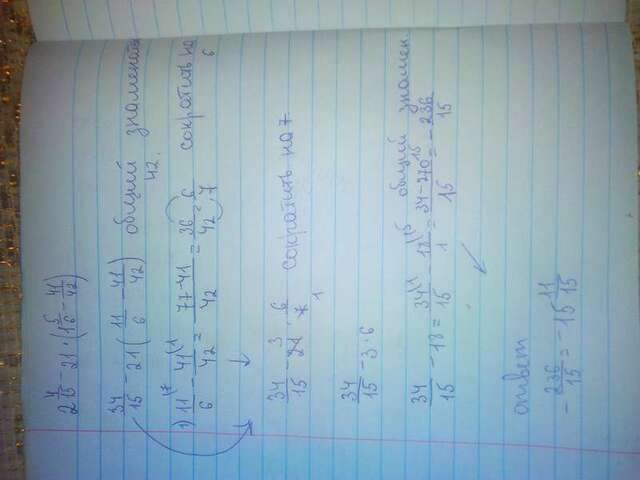 2 4/15 - 21 · (1 5/6 - 41/42)
34/15 - 21 (11/6 - 41/42) общий знаменатель 42.
1) 11/6 \7 - 41/42 \1 = 77-41/42 = 36/42 = 6/7 сократить на 6
34/15 - 21 3 · 6/7 1 сократить на 7
34/15 - 3·6
34/15 - 18 = 34/15 \1 - 18/1 \15 = 34-270/15 = - 236/15 общий знамен. 15
ответ
- 236/15 = -15 11/15